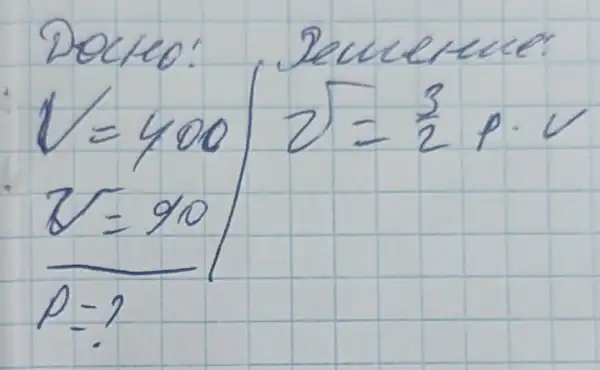 Дано:
V = 400
V = 90
P = ?
Решение:
V = 3/2 p · V